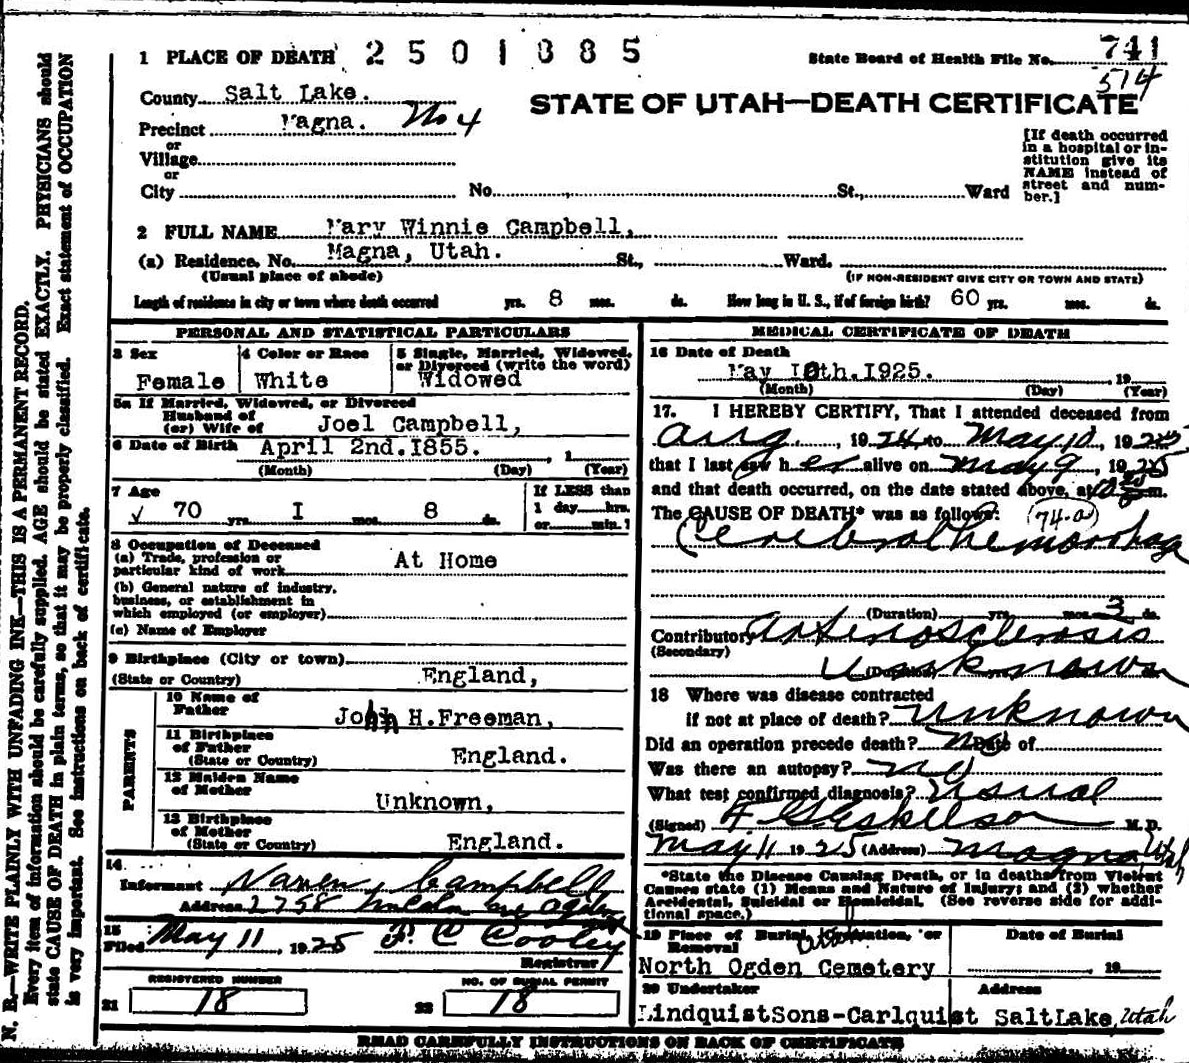 1 PLACE OF DEATH 2501085 State Board of Health File No. 741
514
County Salt Lake.
STATE OF UTAH—DEATH CERTIFICATE
Precinct Magna. No 4
or
Village
or
City No. St., Ward
[If death occurred
in a hospital or in-
stitution give its
NAME instead of
street and num-
ber.]
2 FULL NAME Mary Winnie Campbell,
(a) Residence, No. Magna, Utah. St., Ward.
(Usual place of abode) (IF NON-RESIDENT GIVE CITY OR TOWN AND STATE)
Length of residence in city or town where death occurred yrs. 8 mos. ds. How long in U. S., if of foreign birth? 60 yrs. mos. ds.
PERSONAL AND STATISTICAL PARTICULARS
3 Sex 4 Color or Race 5 Single, Married, Widowed,
or Divorced (write the word)
Female White Widowed
5a If Married, Widowed, or Divorced
Husband of
(or) Wife of Joel Campbell,
6 Date of Birth April 2nd.1855. , 1
(Month) (Day) (Year)
7 Age If LESS than
70 yrs. I mos. 8 ds. 1 day hrs.
or min.?
8 Occupation of Deceased
(a) Trade, profession or
particular kind of work At Home
(b) General nature of industry,
business, or establishment in
which employed (or employer)
(c) Name of Employer
9 Birthplace (City or town)
(State or Country) England,
PARENTS
10 Name of
Father John H.Freeman,
11 Birthplace
of Father
(State or Country) England.
12 Maiden Name
of Mother Unknown,
13 Birthplace
of Mother
(State or Country) England.
14
Informant Campbell
Address 2758 Lincoln ave Ogden
15
Filed May 11 1925 F. C Cooley
Registrar
REGISTERED NUMBER NO. OF BURIAL PERMIT
21 18 22 18
MEDICAL CERTIFICATE OF DEATH
16 Date of Death
May 10th.1925. , 19
(Month) (Day) (Year)
17. I HEREBY CERTIFY, That I attended deceased from
Aug , 1924 to May 10, 1925
that I last saw her alive on May 9, 1925
and that death occurred, on the date stated above, at 10 m.
The CAUSE OF DEATH* was as follows: (74-a)
Cerebral Hemorrhag
(Duration) yrs. mos. 3 ds.
Contributory Arteriosclerosis
(Secondary)
(Duration) unknown
18 Where was disease contracted
if not at place of death? Unknown
Did an operation precede death? No Date of
Was there an autopsy? no
What test confirmed diagnosis? usual
(Signed) M. D.
May 11 1925 (Address) Magna Utah
*State the Disease Causing Death, or in deaths from Violent
Causes state (1) Means and Nature of Injury; and (2) whether
Accidental, Suicidal or Homicidal. (See reverse side for addi-
tional space.)
19 Place of Burial, Cremation, or Date of Burial
Removal Utah
North Ogden Cemetery , 19
20 Undertaker Address
LindquistSons-Carlquist SaltLake, Utah
READ CAREFULLY INSTRUCTIONS ON BACK OF CERTIFICATE
N. B.—WRITE PLAINLY WITH UNFADING INK—THIS IS A PERMANENT RECORD.
Every item of information should be carefully supplied. AGE should be stated EXACTLY. PHYSICIANS should
state CAUSE OF DEATH in plain terms, so that it may be properly classified. Exact statement of OCCUPATION
is very important. See instructions on back of certificate.